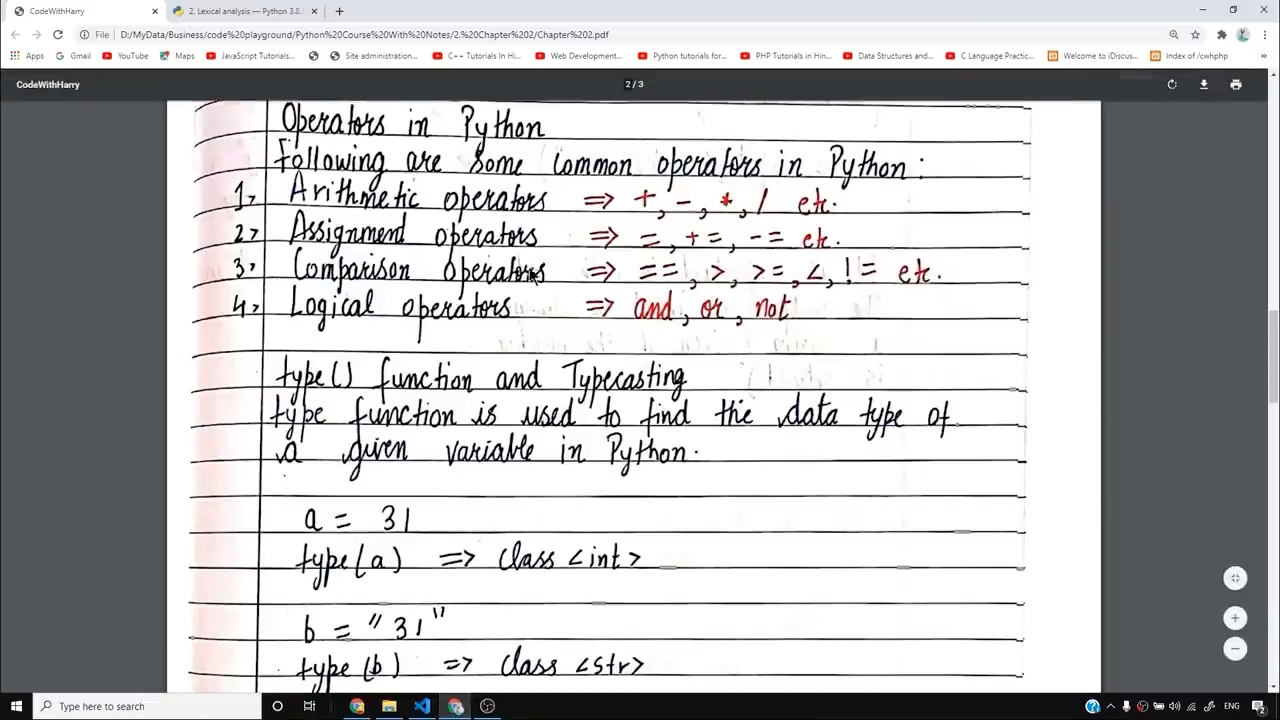 CodeWithHarry
2. Lexical analysis — Python 3.8.
File
D:/MyData/Business/code%20playground/Python%20Course%20With%20Notes/2.%20Chapter%202/Chapter%202.pdf
Apps
Gmail
YouTube
Maps
JavaScript Tutorials...
Site administration...
C++ Tutorials In Hi...
Web Development...
Python tutorials for...
PHP Tutorials in Hin...
Data Structures and...
C Language Practic...
Welcome to iDiscus...
Index of /cwhphp
CodeWithHarry
2/3
Operators in Python
Following are some common operators in Python :
1> Arithmetic operators => +, -, *, / etc.
2> Assignment operators => =, +=, -= etc.
3> Comparison operators => ==, >, >=, <, != etc.
4> Logical operators => and, or, not
type() function and Typecasting
type function is used to find the data type of
a given variable in Python.
a = 31
type(a) => class <int>
b = "31"
type(b) => class <str>
Type here to search
ENG
2